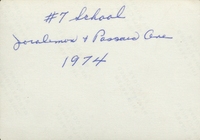 #7 School
Joralemon & Passaic Ave
1974